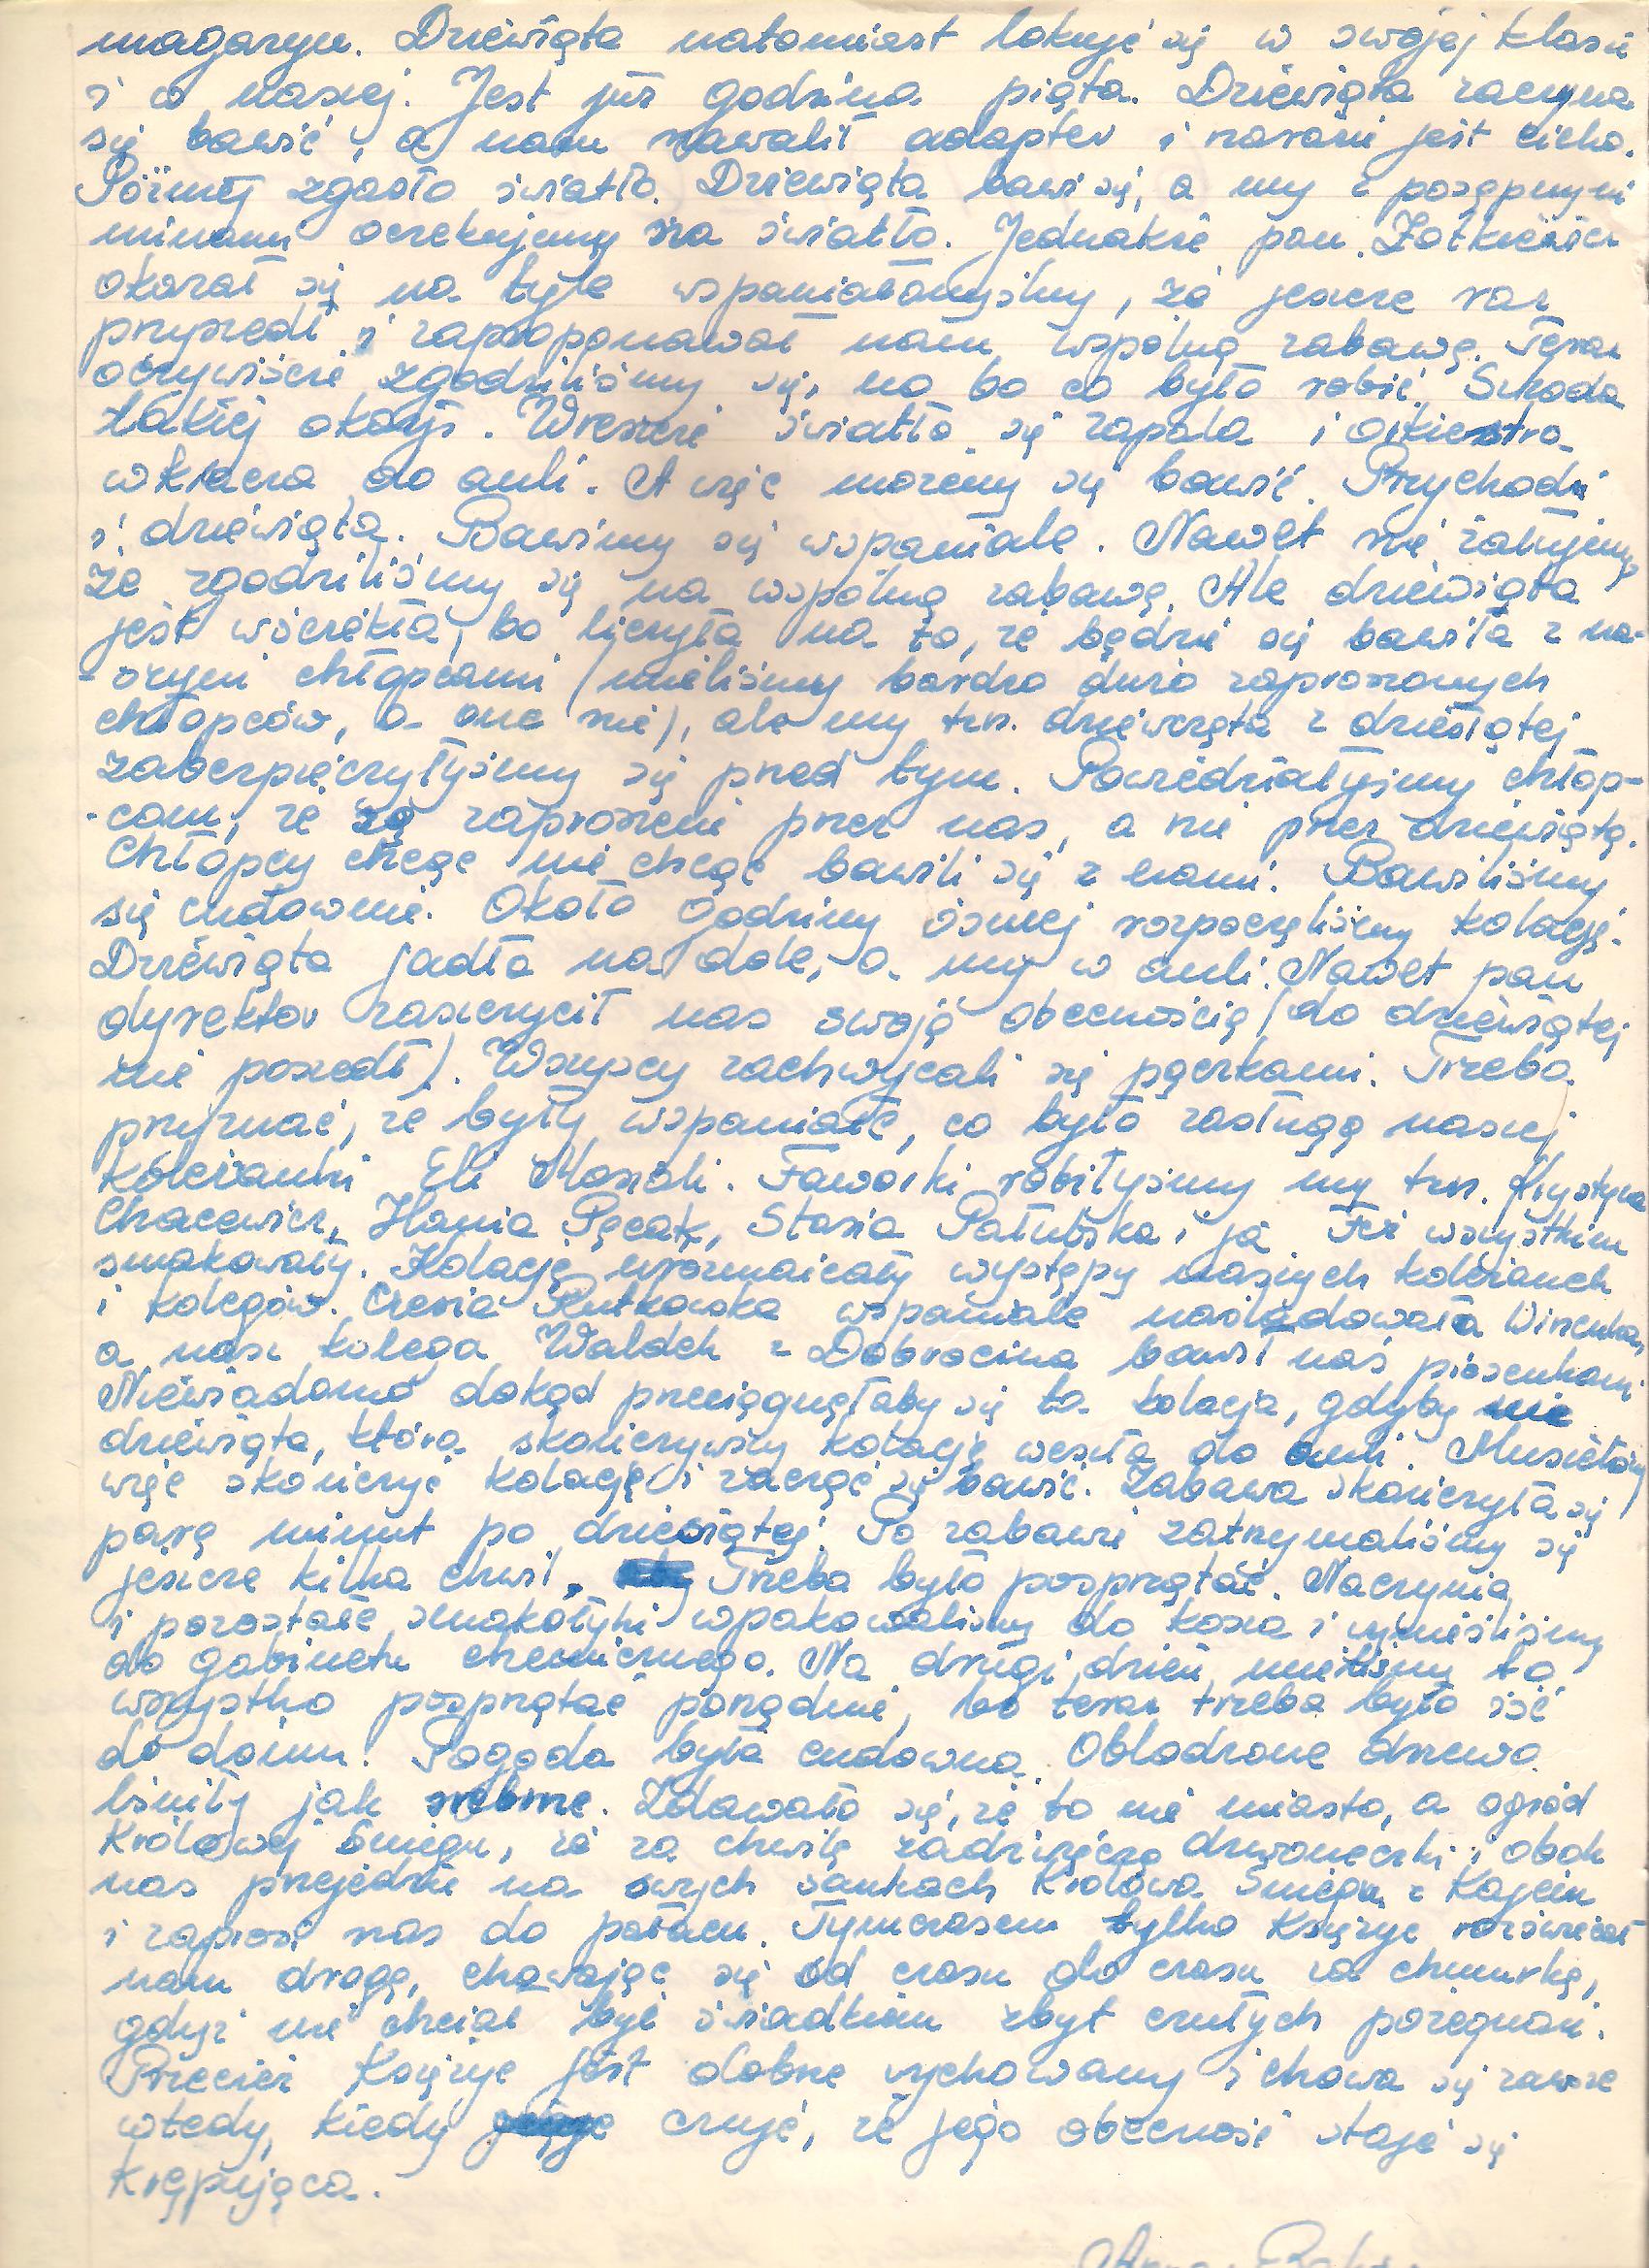 magazynu. Dziewiąta natomiast lokuje się w swojej klasie
i w naszej. Jest już godzina piąta. Dziewiąta zaczyna
się bawić, a nam nawalił adapter i na razie jest cicho.
Później zgasło światło. Dziewiąta bawi się, a my z posępnymi
minami oczekujemy na światło. Jednakże pan
okazał się na tyle wspaniałomyślny, że jeszcze raz
przyszedł i zaproponował nam wspólną zabawę. Teraz
oczywiście zgodziliśmy się, no bo co było robić. Szkoda
takiej okazji. Wreszcie światło się zapala i orkiestra
wkracza do auli. A więc możemy się bawić. Przychodzi
i dziewiąta. Bawimy się wspaniale. Nawet nie żałujemy,
że zgodziliśmy się na wspólną zabawę. Ale dziewiąta
jest wściekła, bo liczyła na to, że będzie się bawiła z na-
-szymi chłopcami (mieliśmy bardzo dużo zaproszonych
chłopców, a one nie), ale my tzn. dziewczęta z dziesiątej
zabezpieczyłyśmy się przed tym. Powiedziałyśmy chłop-
-com, że są zaproszeni przez nas, a nie przez dziewiątą.
Chłopcy chcąc nie chcąc bawili się z nami. Bawiliśmy
się cudownie. Około godziny ósmej rozpoczęliśmy kolację.
Dziewiąta jadła na dole, a my w auli. Nawet pan
dyrektor zaszczycił nas swoją obecnością (do dziewiątej
nie poszedł). Wszyscy zachwycali się pączkami. Trzeba
przyznać, że były wspaniałe, co było zasługą naszej
koleżanki Eli. Faworki robiłyśmy my tzn. Krystyna
Chacewicz, Hania Pęcak, Stasia Pałubska i ja. Też wszystkim
smakowały. Kolację urozmaicały występy naszych koleżanek
i kolegów. Czesia Rutkowska wspaniale naśladowała Wincenka,
a nasz kolega Waldek z Dobrocina bawił nas piosenkami.
Niewiadomo dokąd przeciągnęłaby się ta kolacja, gdyby nie
dziewiąta, która skończywszy kolację weszła do auli. Musieliśmy
więc skończyć kolację i zacząć się bawić. Zabawa skończyła się
parę minut po dziesiątej. Po zabawie zatrzymaliśmy się
jeszcze kilka chwil. Trzeba było posprzątać. Naczynia
i pozostałe smakołyki wpakowaliśmy do kosza i wynieśliśmy
do gabinetu chemicznego. Na drugi dzień mieliśmy to
wszystko posprzątać porządnie, bo teraz trzeba było iść
do domu. Pogoda była cudowna. Oblodzone drzewa
lśniły jak srebrne. Zdawało się, że to nie miasto, a ogród
Królowej Śniegu, że za chwilę zadźwięczą dzwoneczki i obok
nas przejedzie na swych sankach Królowa Śniegu z Kajem
i zaprosi nas do pałacu. Tymczasem tylko Księżyc rozświecał
nam drogę, chowając się od czasu do czasu za chmurkę,
gdyż nie chciał być świadkiem zbyt czułych pożegnań.
Przecież Księżyc jest dobrze wychowany i chowa się zawsze
wtedy, kiedy czuje, że jego obecność staje się
krępująca.